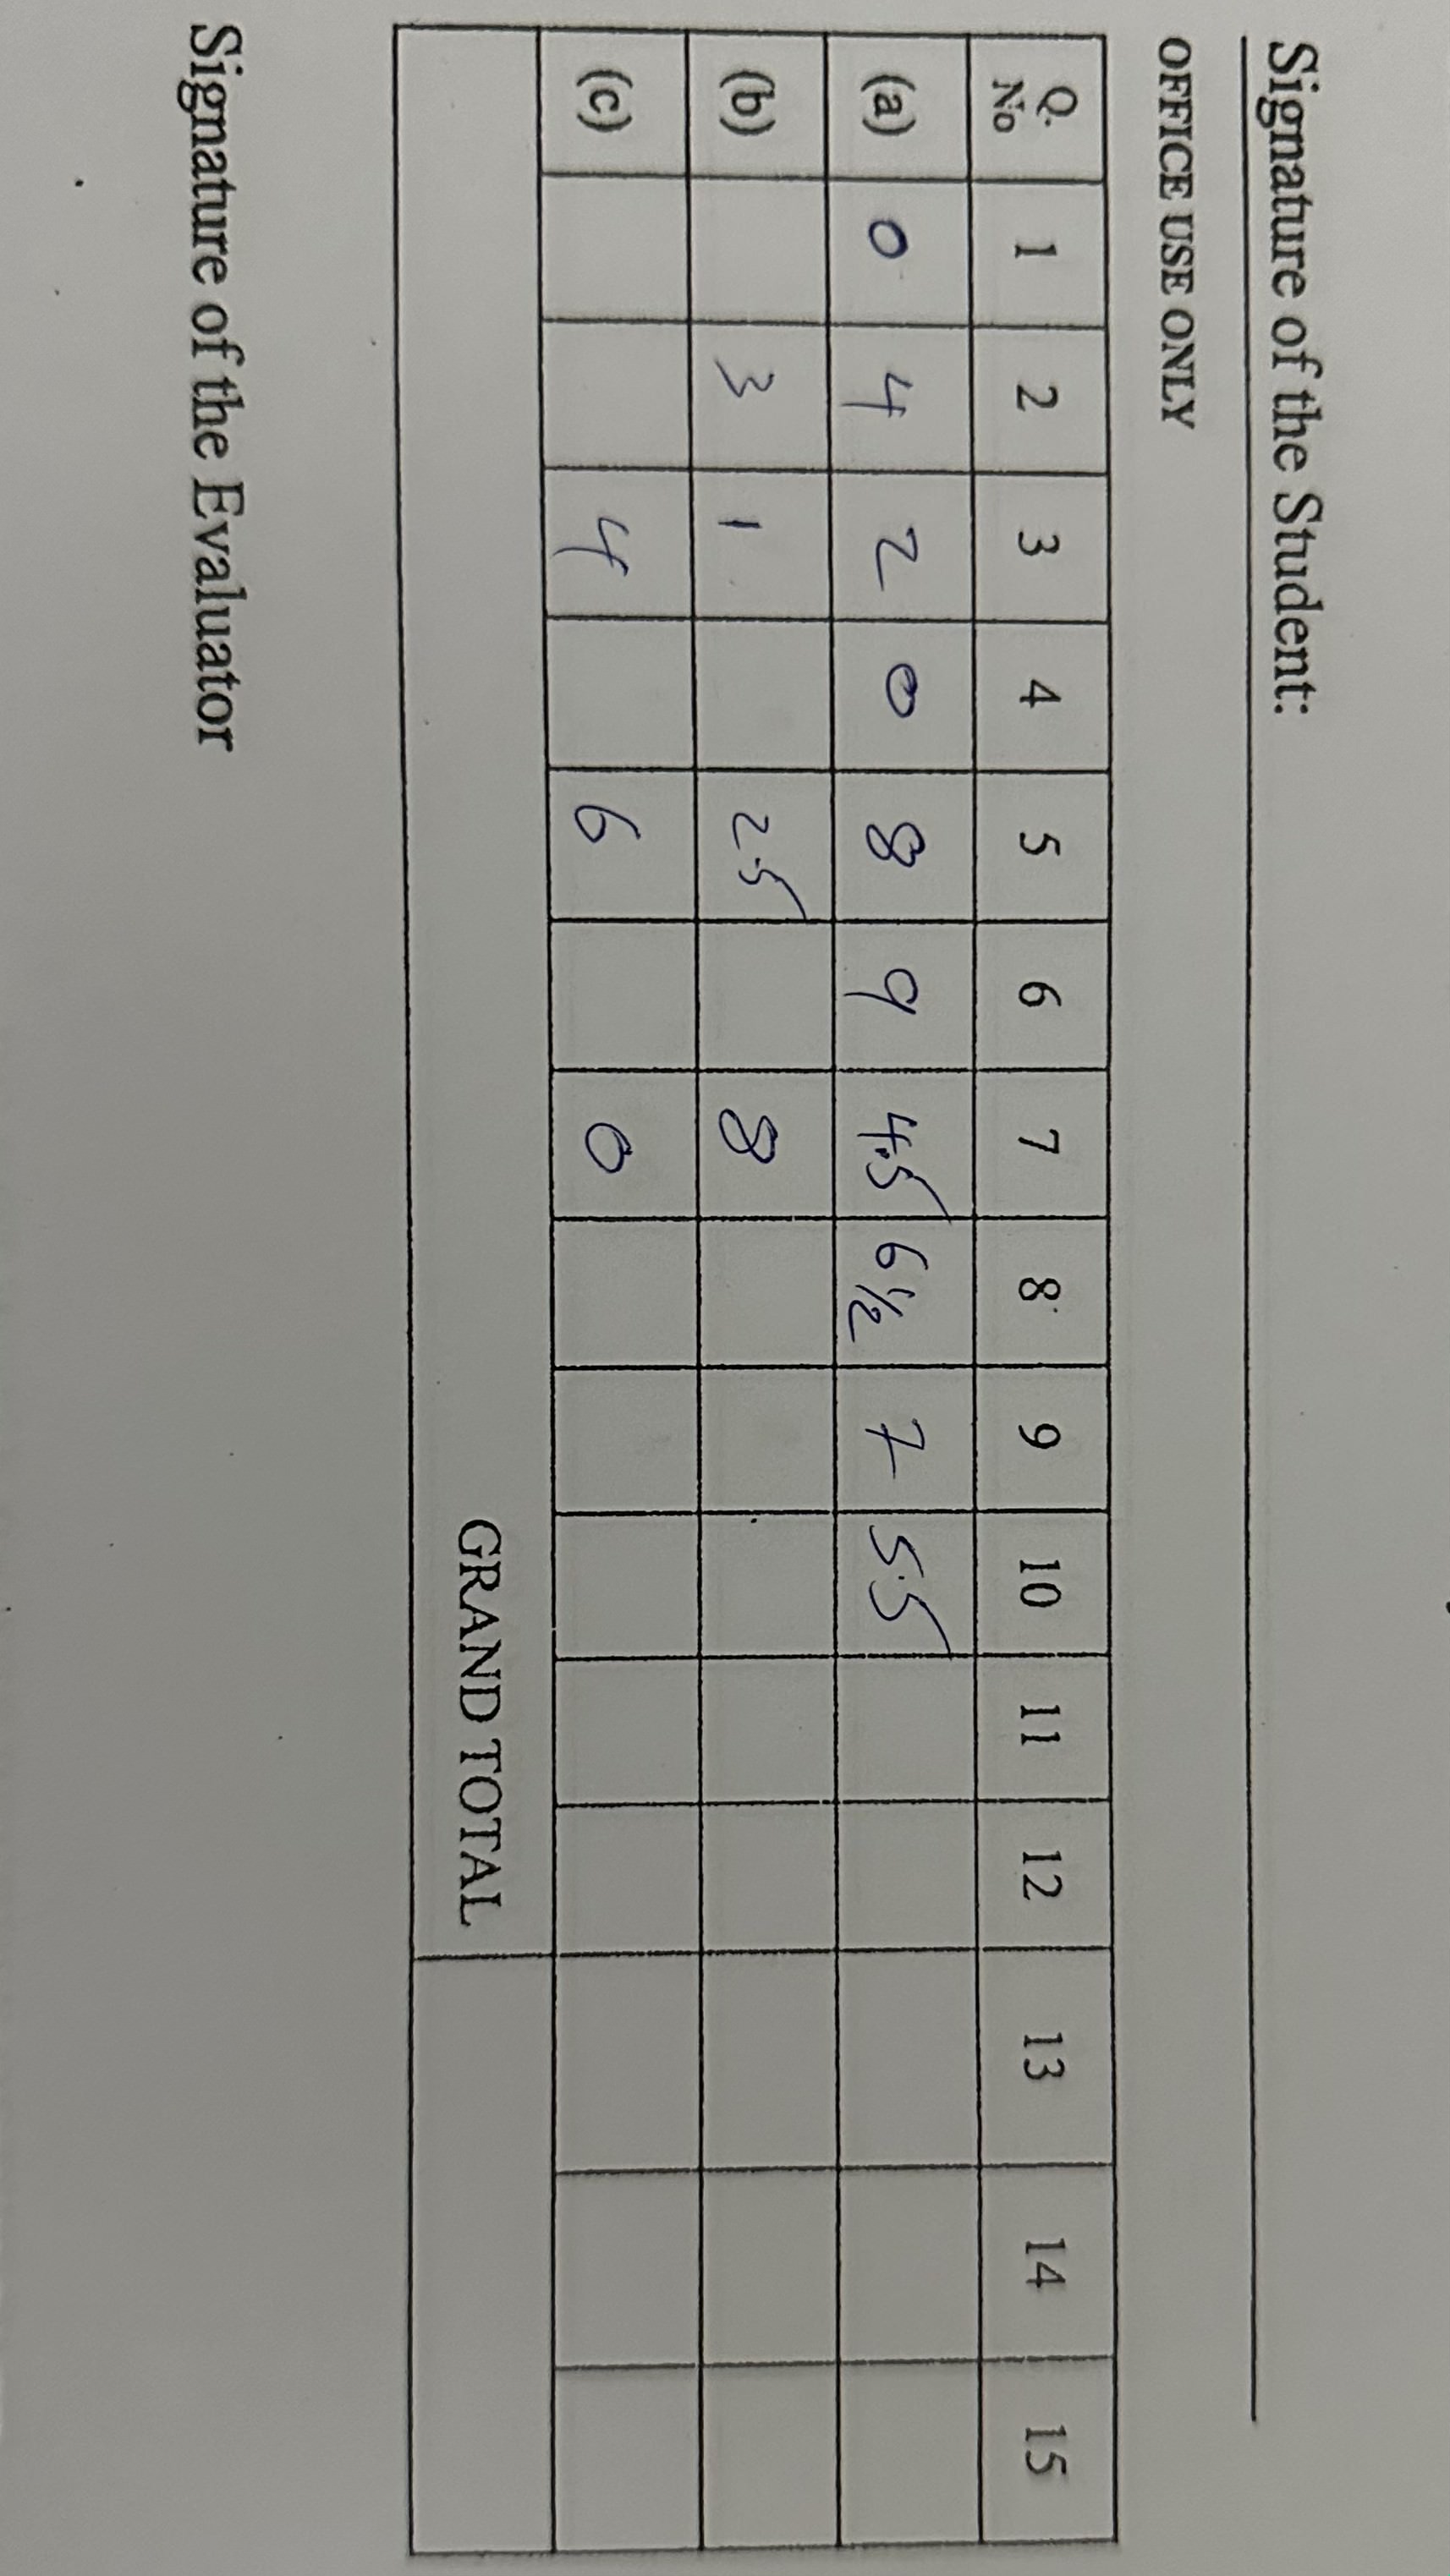 Signature of the Student:
OFFICE USE ONLY
Q. No 1 2 3 4 5 6 7 8 9 10 11 12 13 14 15
(a) 0 4 2 0 8 9 4.5 6 1/2 7 5.5
(b) 3 1 2.5 8
(c) 4 6 0
GRAND TOTAL
Signature of the Evaluator